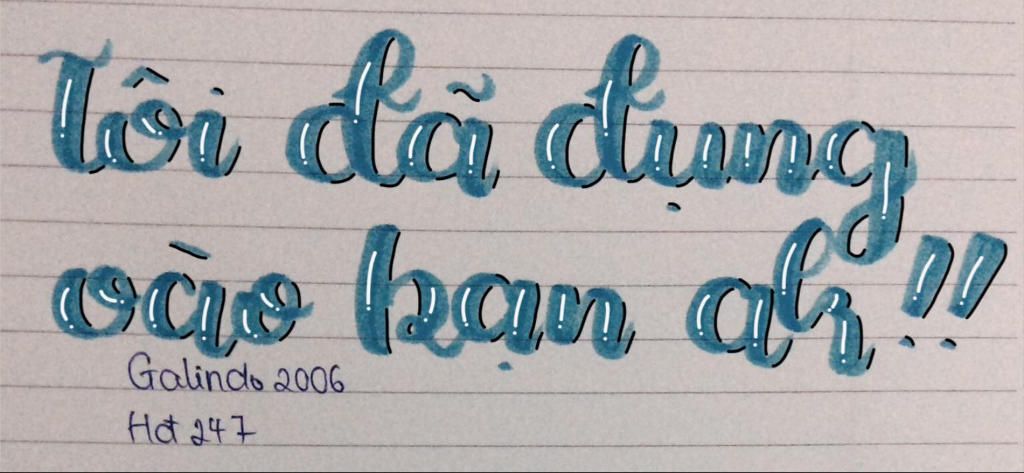 Tôi đã đụng
vào bạn ak!!
Galindo 2006
Hot 247